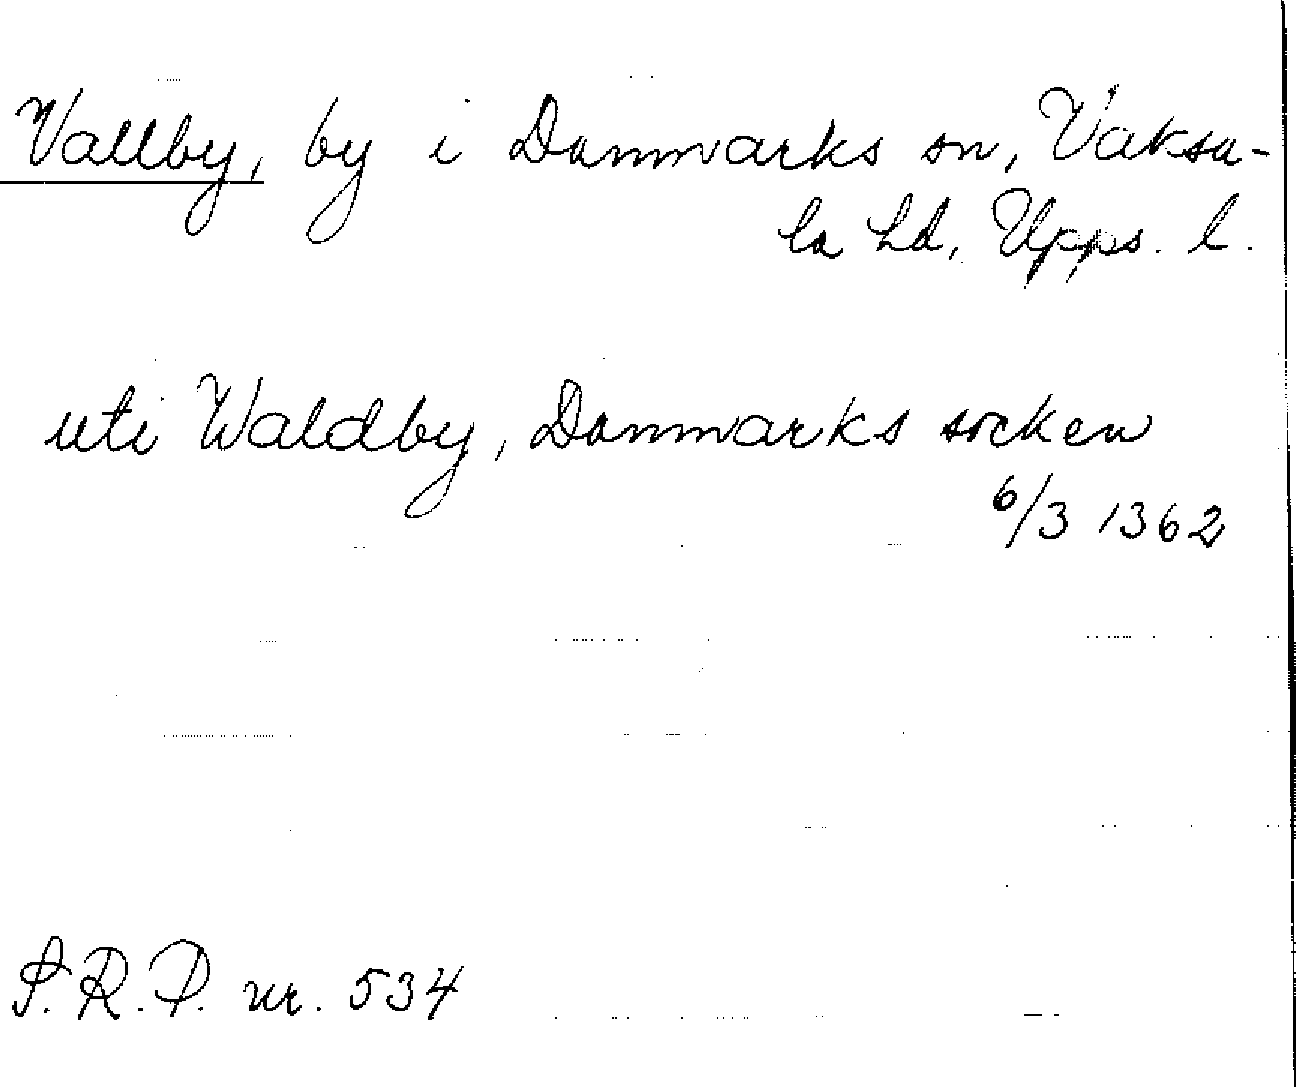 Vallby, by i Danmarks sn, Vaksa-
la hd, Upps. l.
uti Waldby, Danmarks socken
6/3 1362
S.R.P. nr. 534